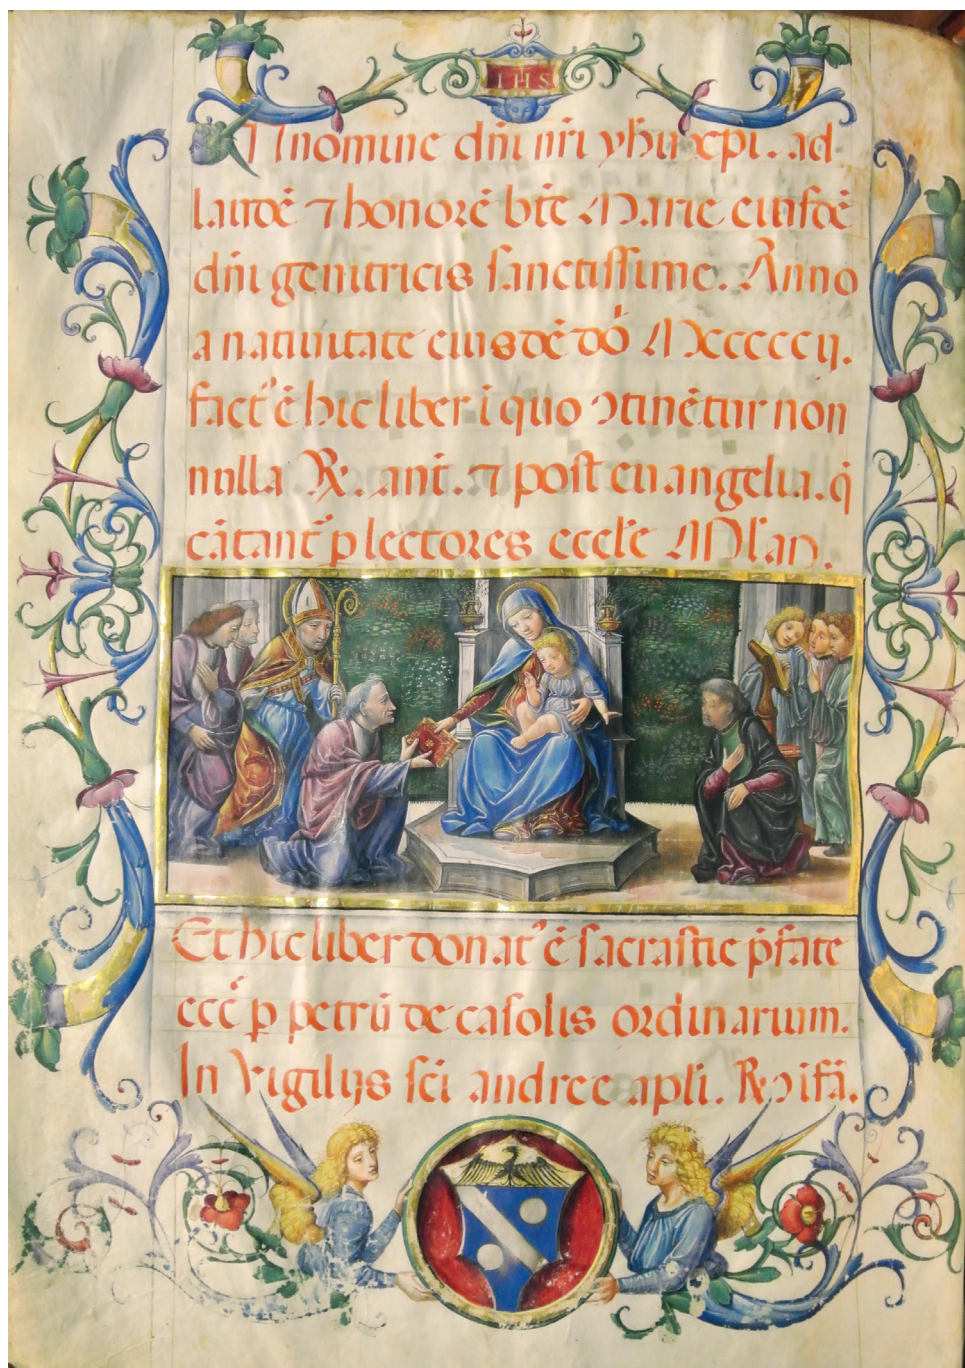 IHS
In nomine dn̄i nr̄i yhu xpi. ad
laudē ⁊ honorē bt̄e Marie eiusdē
dn̄i genitricis sanctissime. Anno
a natiuitate eiusdē dō Mcccccij.
fact' ē hic liber i quo ↄtinēt̄ur non
nulla R. ant̄. ⁊ post euangelia. q̄
cātant̄ p lectores eccl̄e Mlan̄.
Et hic liber donat' ē sacrastie p̄fate
eccē p petrū de casolis ordinarium.
In vigilijs sc̄i andree apl̄i. R. ↄ ifā.